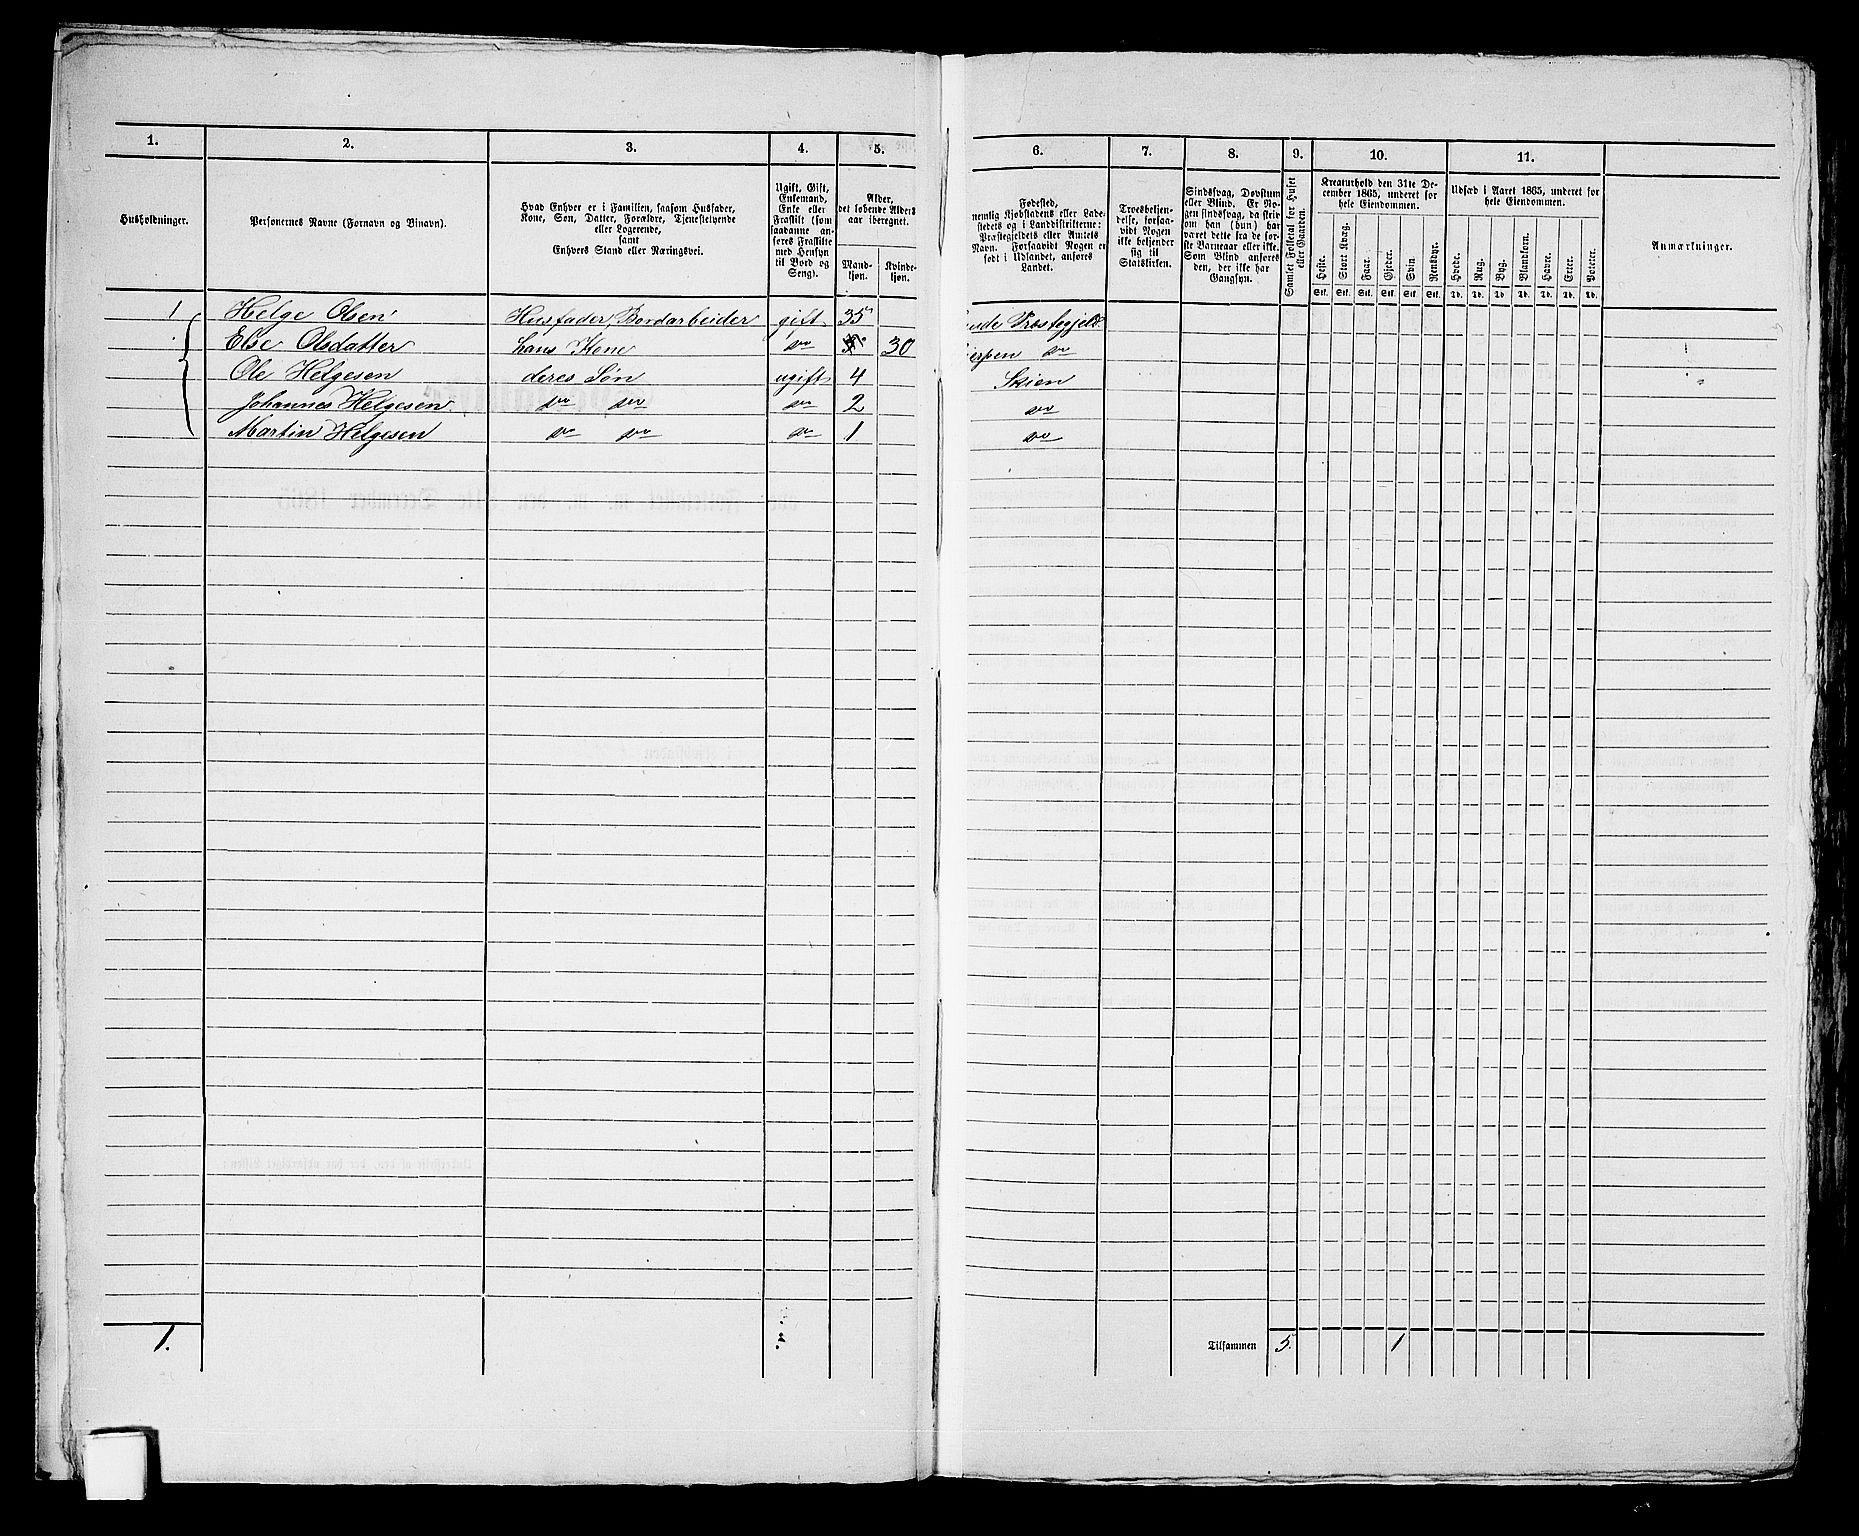 1. 2. 3. 4. 5. 6. 7. 8. 9. 10. 11.
Husholdninger.
Personernes Navne (Fornavn og Binavn).
Hvad Enhver er i Familien, saasom Husfader,
Kone, Søn, Datter, Forældre, Tjenestetyende
eller Logerende,
samt
Enhvers Stand eller Næringsvei.
Ugift, Gift,
Enkemand,
Enke eller
Fraskilt (som
saadanne an-
føres Fraskilte
med Hensyn
til Bord og
Seng).
Alder,
det løbende Alders-
aar iberegnet.
Mand-
kjøn.
Kvinde-
kjøn.
Fødested,
nemlig Kjøbstadens eller Lade-
stedets og i Landdistrikterne:
Præstegjeldets eller Amtets
Navn. Forsaavidt Nogen er
født i Udlandet, anføres
Landet.
Troesbekjen-
delse, forsaa-
vidt Nogen
ikke bekjender
sig til
Statskirken.
Sindssvag, Døvstum
eller Blind. Er No-
gen sindssvag, da skriv
om han (hun) har
været dette fra de før-
ste Barneaar eller ikke.
Som Blind anføres
den, der ikke har
Gangsyn.
Samlet Folketal for Huset
eller Gaarden.
Kreaturhold den 31te De-
cember 1865, underet for
hele Eiendommen.
Heste.
Stort Kvæg.
Faar.
Gjeder.
Svin.
Rensdyr.
Stk. Stk. Stk. Stk. Stk. Stk.
Udsæd i Aaret 1865, underet for
hele Eiendommen.
Hvede.
Rug.
Byg.
Blandkorn.
Havre.
Erter.
Poteter.
Td. Td. Td. Td. Td. Td. Td.
Anmærkninger.
1 Helge Olsen Husfader, Bordarbeider gift 35 Præstegjeld
Else Olsdatter hans Kone do 30 do
Ole Helgesen deres Søn ugift 4 Skien
Johannes Helgesen do do do 2 do
Martin Helgesen do do do 1 do
1. Tilsammen 5. 1